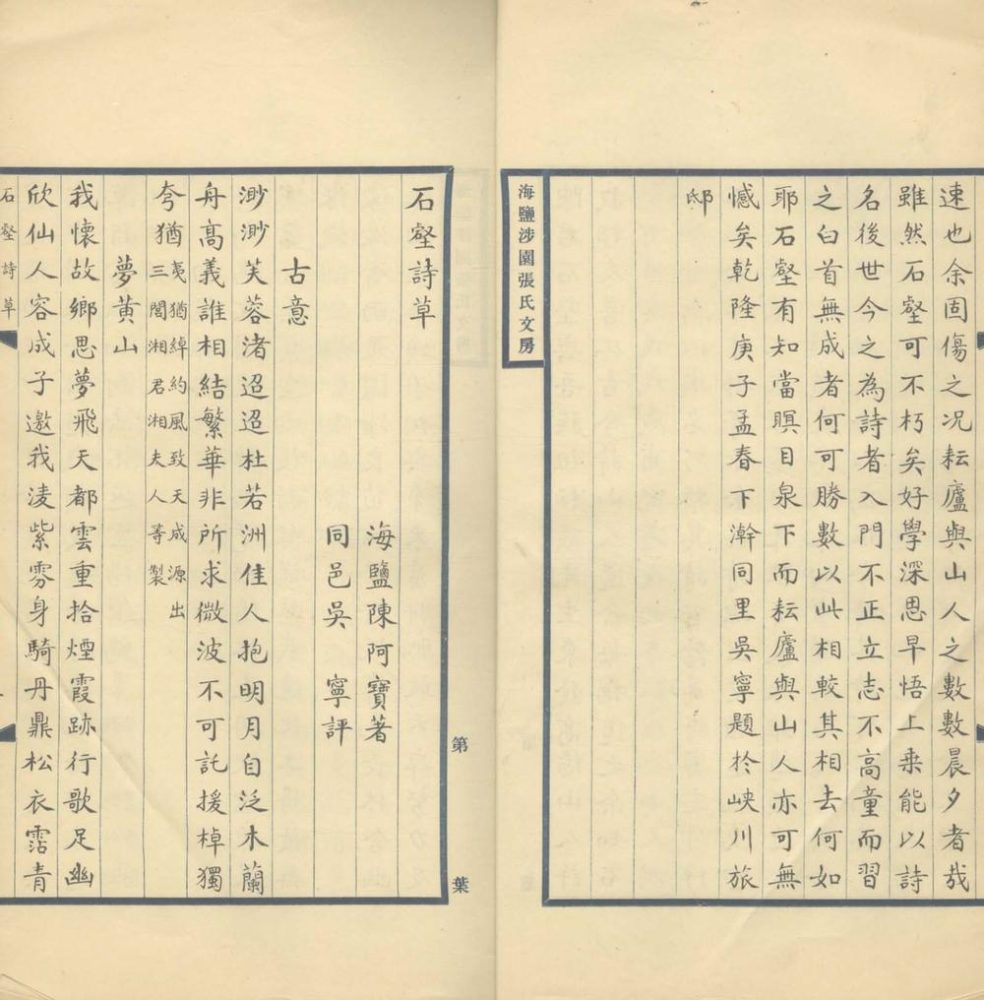 速也余固傷之况耘廬與山人之數數晨夕者哉
雖然石壑可不朽矣好學深思早悟上乗能以詩
名後世今之為詩者入門不正立志不高童而習
之白首無成者何可勝數以此相較其相去何如
耶石壑有知當瞑目泉下而耘廬與山人亦可無
憾矣乾隆庚子孟春下澣同里吳寧題於峡川旅
邸
海鹽涉園張氏文房
第 葉
石壑詩草
海鹽陳阿寶著
同邑吳寧評
古意
渺渺芙蓉渚迢迢杜若洲佳人抱明月自泛木蘭
舟高義誰相結繁華非所求微波不可託援棹獨
夸猶
夷猶綽約風致天成源出
三閭湘君湘夫人等製
夢黄山
我懷故鄉思夢飛天都雲重拾煙霞跡行歌足幽
欣仙人容成子邀我淩紫雰身騎丹鼎松衣霑青
石壑詩草